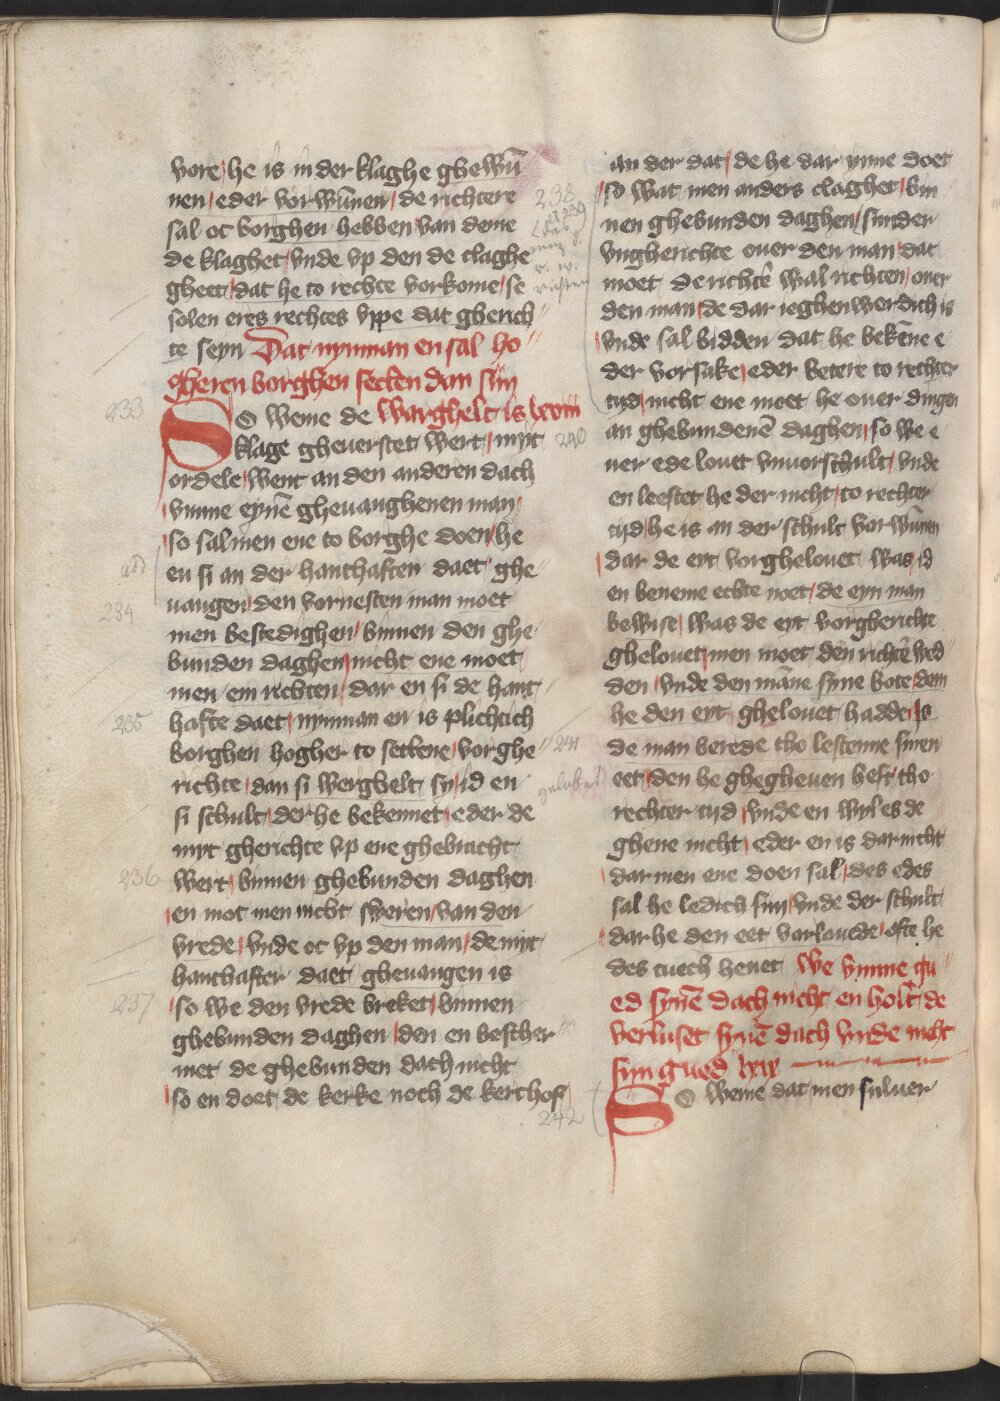 vore he is in der klaghe ghewū
nen eder vorwūnen de richtere
sal oc borghen hebben van deme
de klaghet vnde vp den de claghe
gheet dat he to rechte vorkome se
solen eres rechtes vppe dat gherich
te seyn Dat nymman en sal ho
gheren borghen setten dan sin
warghelt is lxviii
SO weme de
klage gheuerstet wert myt
ordele went an den anderen dach
vmme eynē gheuanghenen man
so salmen ene to borghe doen he
en si an der hanthaften daet ghe
uangen den vornesten man moet
men bestedighen binnen den ghe
bunden daghen nicht ene moet
men em richten dar en si de hant
hafte daet nymman en is plichtich
borghen hogher to settene vor ghe
richte dan si wergbelt sy id en
si schult der he bekennet eder de
myt gherichte vp ene ghebracht
wert binnen ghebunden daghen
en mot men nicht sweren van den
vrede vnde oc vp den man de myt
hanthafter daet gheuangen is
so we den vrede breket binnen
ghebunden daghen den en bescher
met de ghebunden dach nicht
so en doet de kerke noch de kerchof
an der dat de he dar ynne doet
so wat men anders claghet bin
nen ghebunden daghen sunder
vngherichte ouer den man dat
moet de richtē wal richten ouer
den man de dar ieghenwordich is
vnde sal bidden dat he bekēne e
der vorsake eder betere to rechter
tyd nicht ene moet he ouer dingen
an ghebundenē daghen so we e
ner ede louet vmuorschult vnde
en leestet he der nicht to rechter
tyd he is an der schult vorwūnen
dar de eyt vorghelouet was id
en beneme echte noet de eyn man
bewise was de eyt vorgherichte
ghelouet men moet den richtē wed
den vnde den māne syne bote dem
he den eyt ghelouet hadde is
de man berede tho lestenne sinen
eet den he ghegheuen heft tho
rechter tyd vnde en wyles de
ghene nicht eder en is dar nicht
dar men ene doen sal des edes
sal he ledich sin vnde der schult
dar he den eet vorlouede ofte he
des tuech heuet We vmme gu
ed synē dach nicht en holt de
verluset synē dach vnde nicht
syn gued lxix
SO weme dat men suluer
233
add
234
235
236
237
238
240
241
242